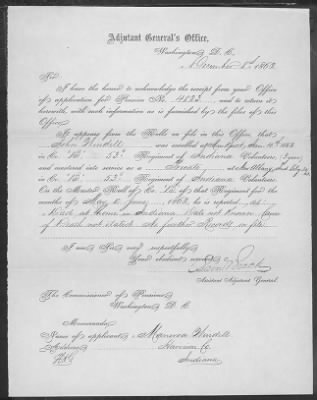 Adjutant General's Office,
Washington, D. C.
1863
Sir:
I have the honor to acknowledge the receipt from your Office
of application for Pension No. 4823, and to return it
herewith, with such information as is furnished by the files of this
Office.
It appears from the Rolls on file in this Office, that
John Windell was enrolled
Co. 53d Regiment of Indiana Volunteers, 3 years
and mustered into service as a Private at New Albany, Ind.
Co. 53d Regiment of Indiana Volunteers.
On the Muster Roll of Co. of that Regiment, for the
months of May & June, 1862, he is reported
Died at home in Indiana Date not known. Cause
of Death not stated. No further Records on file.
I am, Sir, very respectfully,
Your obedient servant,
Assistant Adjutant General.
The Commissioner of Pensions,
Washington, D. C.
Memoranda.
Name of applicant, Windell
Address, Harrison Co.
Indiana